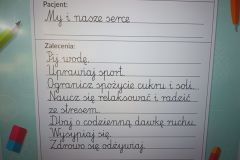 Pacjent:
My i nasze serce
Zalecenia:
Pij wodę.
Uprawiaj sport.
Ogranicz spożycie cukru i soli...
Naucz się relaksować i radzić
ze stresem.
Dbaj o codzienną dawkę ruchu.
Wysypiaj się.
Zdrowo się odżywiaj.